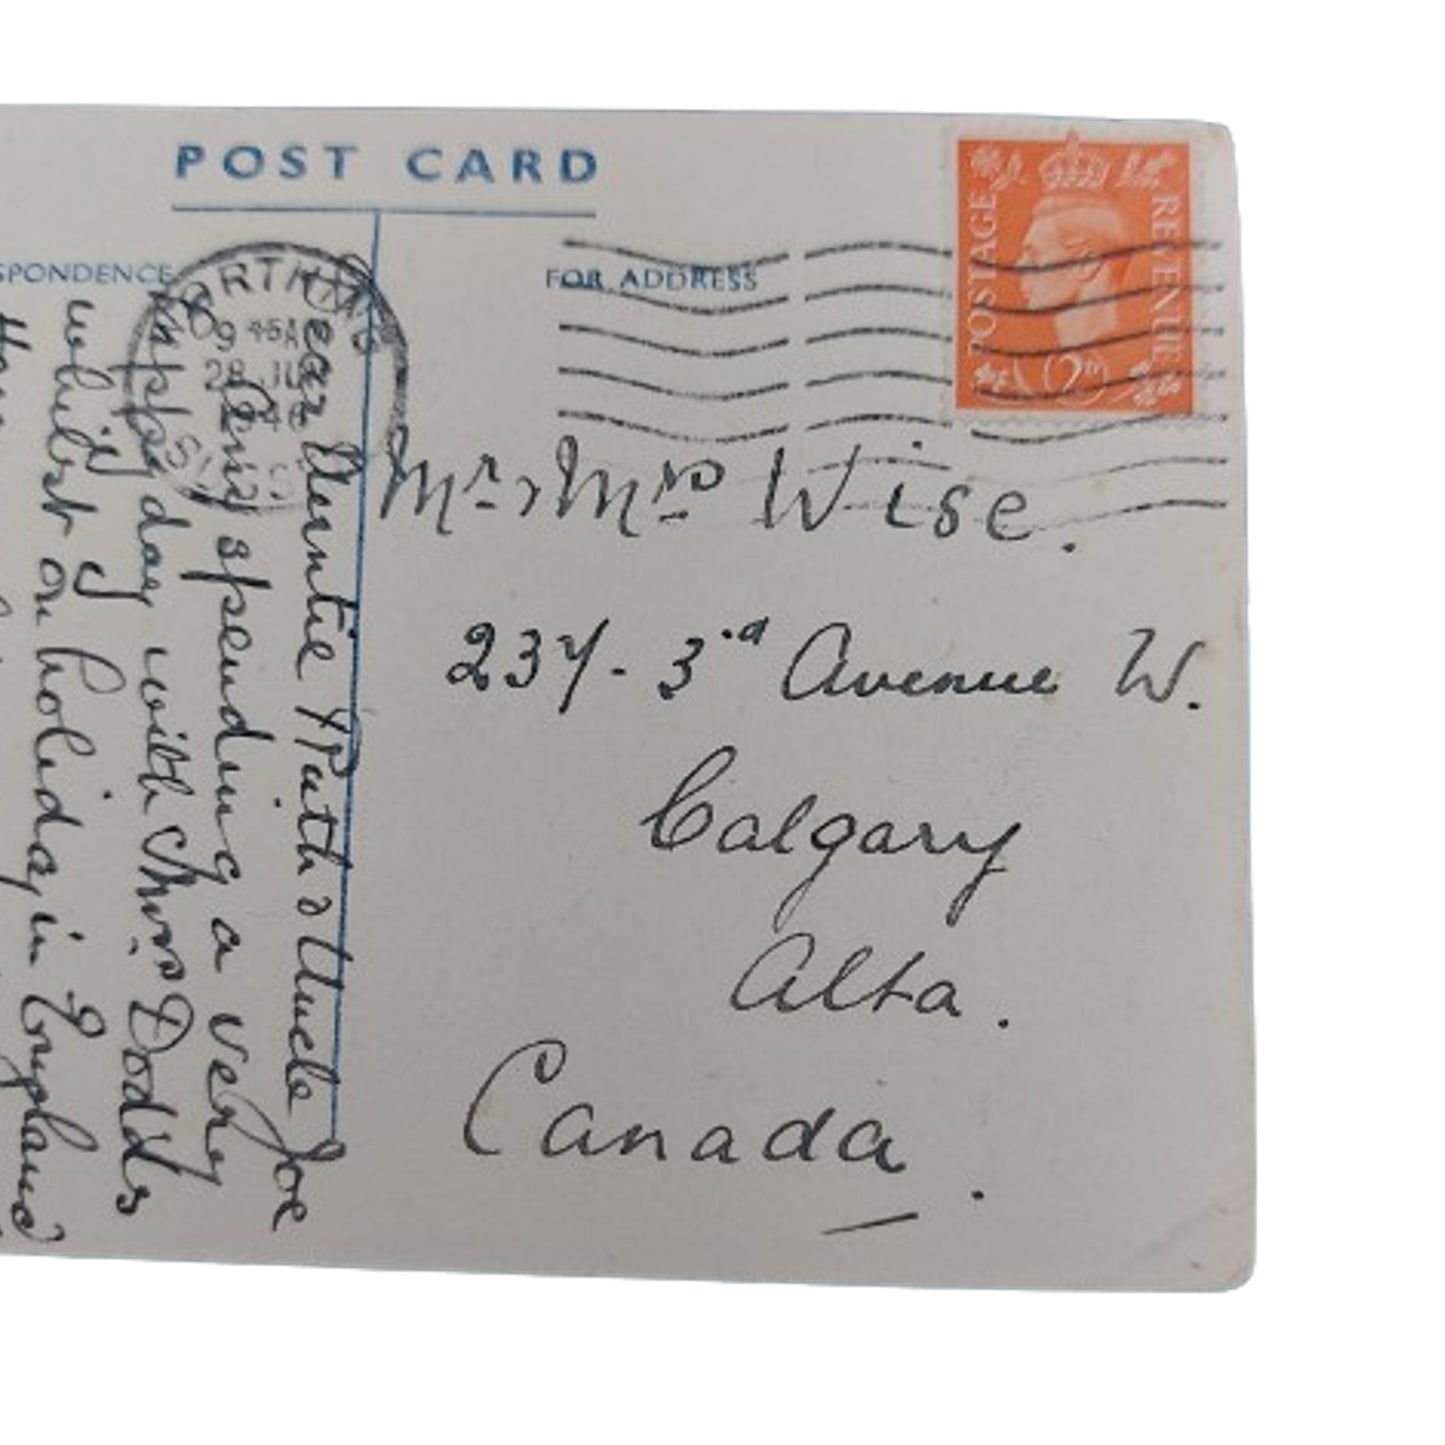 POST CARD
SPONDENCE
FOR ADDRESS
POSTAGE
REVENUE
2D
WORTHING
9 45A
28 JU
Mr & Mrs Wise.
237 - 3rd Avenue W.
Calgary
Alta.
Canada.
Dear Auntie Ruth & Uncle Joe
spending a very
happy day with Mrs Dodds
whilst on holiday in England